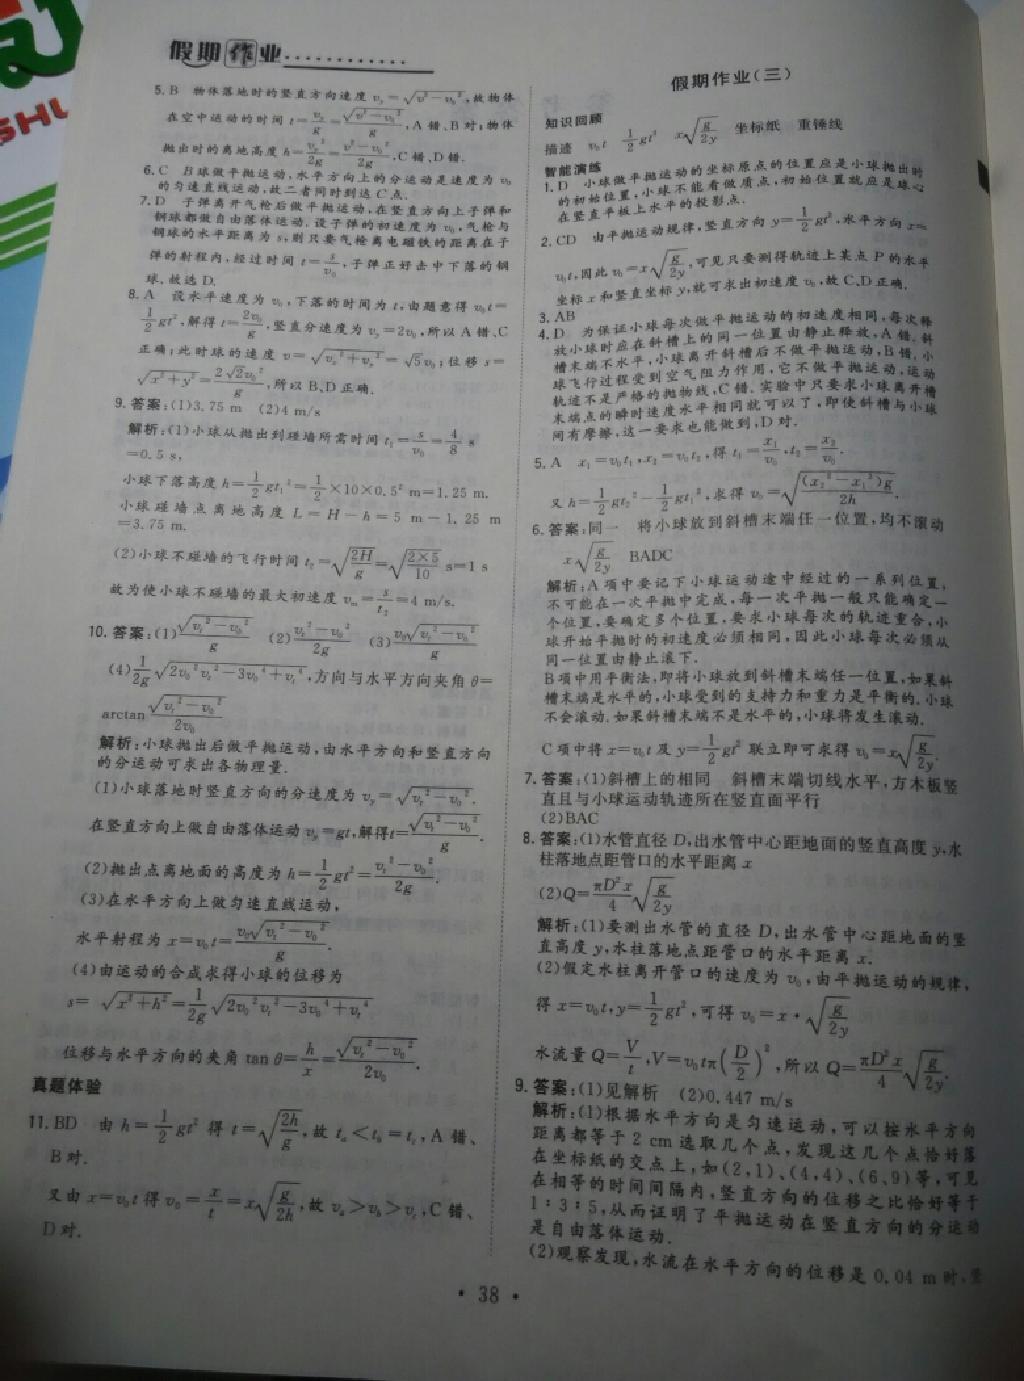 SHU
假期作业
5. B 物体落地时的竖直方向速度 v_y=√(v²-v₀²),故物体
在空中运动的时间 t=v_y/g=√(v²-v₀²)/g,A 错、B 对;物体
抛出时的离地高度 h=v_y²/2g=(v²-v₀²)/2g,C 错、D 错.
6. C B 球做平抛运动,水平方向上的分运动是速度为 v₀
的匀速直线运动,故二者同时到达 C 点.
7. D 子弹离开气枪后做平抛运动,在竖直方向上子弹和
钢球都做自由落体运动.设子弹的初速度为 v₀,气枪与
钢球的水平距离为 s,则只要气枪离电磁铁的距离在子
弹的射程内,经过时间 t=s/v₀,子弹正好击中下落的钢
球,故选 D.
8. A 设水平速度为 v₀,下落的时间为 t,由题意得 v₀t=
1/2 gt²,解得 t=2v₀/g,竖直分速度为 v_y=2v₀,所以 A 错、C
正确;此时球的速度 v=√(v_x²+v_y²)=√5v₀;位移 s=
√(x²+y²)=2√2v₀²/g,所以 B、D 正确.
9. 答案:(1)3.75 m (2)4 m/s
解析:(1)小球从抛出到碰墙所需时间 t₁=s/v₀=4/8 s
=0.5 s,
小球下落高度 h=1/2 gt₁²=1/2×10×0.5² m=1.25 m.
小球碰墙点离地高度 L=H-h=5 m-1.25 m
=3.75 m.
(2)小球不碰墙的飞行时间 t₂=√(2H/g)=√(2×5/10) s=1 s
故为使小球不碰墙的最大初速度 v_m=s/t₂=4 m/s.
10. 答案:(1)√(v_t²-v₀²)/g (2)(v_t²-v₀²)/2g (3)v₀√(v_t²-v₀²)/g
(4)1/2g √(2v₀²v_t²-3v₀⁴+v_t⁴),方向与水平方向夹角 θ=
arctan √(v_t²-v₀²)/2v₀
解析:小球抛出后做平抛运动,由水平方向和竖直方向
的分运动可求出各物理量.
(1)小球落地时竖直方向的分速度为 v_y=√(v_t²-v₀²).
在竖直方向上做自由落体运动 v_y=gt,解得t=√(v_t²-v₀²)/g.
(2)抛出点离地面的高度为 h=1/2 gt²=(v_t²-v₀²)/2g.
(3)在水平方向上做匀速直线运动,
水平射程为 x=v₀t=v₀√(v_t²-v₀²)/g.
(4)由运动的合成求得小球的位移为
s=√(x²+h²)=1/2g √(2v₀²v_t²-3v₀⁴+v_t⁴)
位移与水平方向的夹角 tan θ=h/x=√(v_t²-v₀²)/2v₀.
真题体验
11. BD 由 h=1/2 gt² 得 t=√(2h/g),故 t_a<t_b=t_c,A 错、
B 对.
又由 x=v₀t 得 v₀=x/t=x√(g/2h),故 v_a>v_b>v_c,C 错、
D 对.
假期作业(三)
知识回顾
描迹 v₀t 1/2 gt² x√(g/2y) 坐标纸 重锤线
智能演练
1. D 小球做平抛运动的坐标原点的位置应是小球抛出时
的初始位置,小球不能看做质点,初始位置就应是球心
在竖直平板上水平的投影点.
2. CD 由平抛运动规律,竖直方向 y=1/2 gt²,水平方向 x=
v₀t,因此 v₀=x√(g/2y),可见只要测得轨迹上某点 P 的水平
坐标 x 和竖直坐标 y,就可求出初速度 v₀,故 C、D 正确.
3. AB
4. D 为保证小球每次做平抛运动的初速度相同,每次释
放小球时应在斜槽上的同一位置由静止释放,A 错.斜
槽末端不水平,小球离开斜槽后不做平抛运动,B 错.小
球飞行过程受到空气阻力作用,它不做平抛运动,运动
轨迹不是严格的抛物线,C 错.实验中只要求小球离开槽
末端点的瞬时速度水平相同就可以了,即使斜槽与小球
间有摩擦,这一要求也能做到,D 对.
5. A x₁=v₀t₁,x₂=v₀t₂,得 t₁=x₁/v₀,t₂=x₂/v₀.
又 h=1/2 gt₂²-1/2 gt₁²,求得 v₀=√((x₂²-x₁²)g/2h).
6. 答案:同一 将小球放到斜槽末端任一位置,均不滚动
x√(g/2y) BADC
解析:A 项中要记下小球运动途中经过的一系列位置,
不可能在一次平抛中完成,每一次平抛一般只能确定一
个位置,要确定多个位置,要求小球每次的轨迹重合,小
球开始平抛时的初速度必须相同,因此小球每次必须从
同一位置由静止滚下.
B 项中用平衡法,即将小球放到斜槽末端任一位置,如果斜
槽末端是水平的,小球受到的支持力和重力是平衡的.小球
不会滚动.如果斜槽末端不是水平的,小球将发生滚动.
C 项中将 x=v₀t 及 y=1/2 gt² 联立即可求得 v₀=x√(g/2y).
7. 答案:(1)斜槽上的相同 斜槽末端切线水平,方木板竖
直且与小球运动轨迹所在竖直面平行
(2)BAC
8. 答案:(1)水管直径 D,出水管中心距地面的竖直高度 y,水
柱落地点距管口的水平距离 x
(2)Q=πD²x/4 √(g/2y)
解析:(1)要测出水管的直径 D,出水管中心距地面的竖
直高度 y,水柱落地点距管口的水平距离 x.
(2)假定水柱离开管口的速度为 v₀,由平抛运动的规律,
得 x=v₀t,y=1/2 gt²,可得 v₀=x·√(g/2y)
水流量 Q=V/t,V=v₀tπ(D/2)²,所以 Q=πD²x/4 √(g/2y).
9. 答案:(1)见解析 (2)0.447 m/s
解析:(1)根据水平方向是匀速运动,可以按水平方向
距离都等于 2 cm 选取几个点,发现这几个点恰好落
在坐标纸的交点上,如(2,1)、(4,4)、(6,9)等,可见
在相等的时间间隔内,竖直方向的位移之比恰好等于
1∶3∶5,从而证明了平抛运动在竖直方向的分运动
是自由落体运动.
(2)观察发现,水流在水平方向的位移是 0.04 m 时,竖
· 38 ·